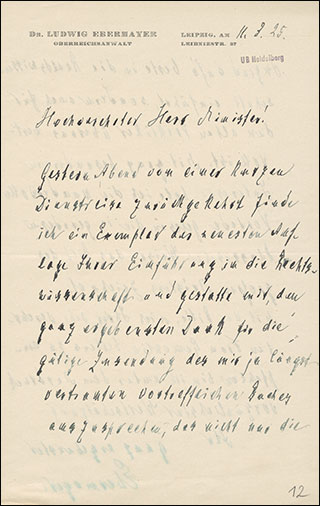 DR. LUDWIG EBERMAYER
OBERREICHSANWALT
LEIPZIG, AM 11. 3. 25.
LEIBNIZSTR. 27
UB Heidelberg
Hochverehrter Herr Minister!
Gestern Abend von einer kurzen
Dienstreise zurückgekehrt finde
ich ein Exemplar der neuesten Auf-
lage Ihrer Einführung in die Rechts-
wissenschaft und gestatte mir, den
ganz ergebensten Dank für die
gütige Zusendung des mir ja längst
vertrauten vortrefflichen Buches
auszusprechen, das nicht nur die
12